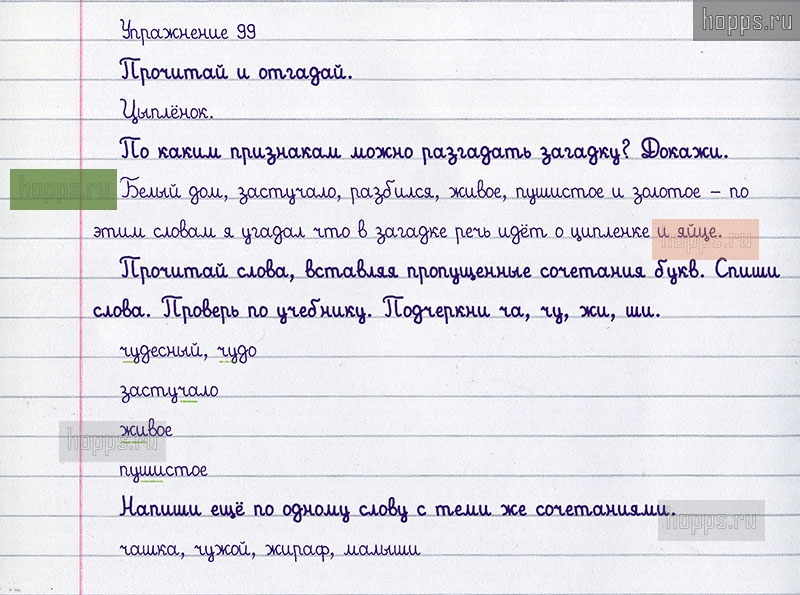 hopps.ru
Упражнение 99
Прочитай и отгадай.
Цыплёнок.
По каким признакам можно разгадать загадку? Докажи.
hopps.ru
Белый дом, застучало, разбился, живое, пушистое и золотое – по
этим словам я угадал что в загадке речь идёт о ципленке и яйце.
hopps.ru
Прочитай слова, вставляя пропущенные сочетания букв. Спиши
слова. Проверь по учебнику. Подчеркни ча, чу, жи, ши.
чудесный, чудо
застучало
живое
hopps.ru
пушистое
Напиши ещё по одному слову с теми же сочетаниями.
hopps.ru
чашка, чужой, жираф, малыши